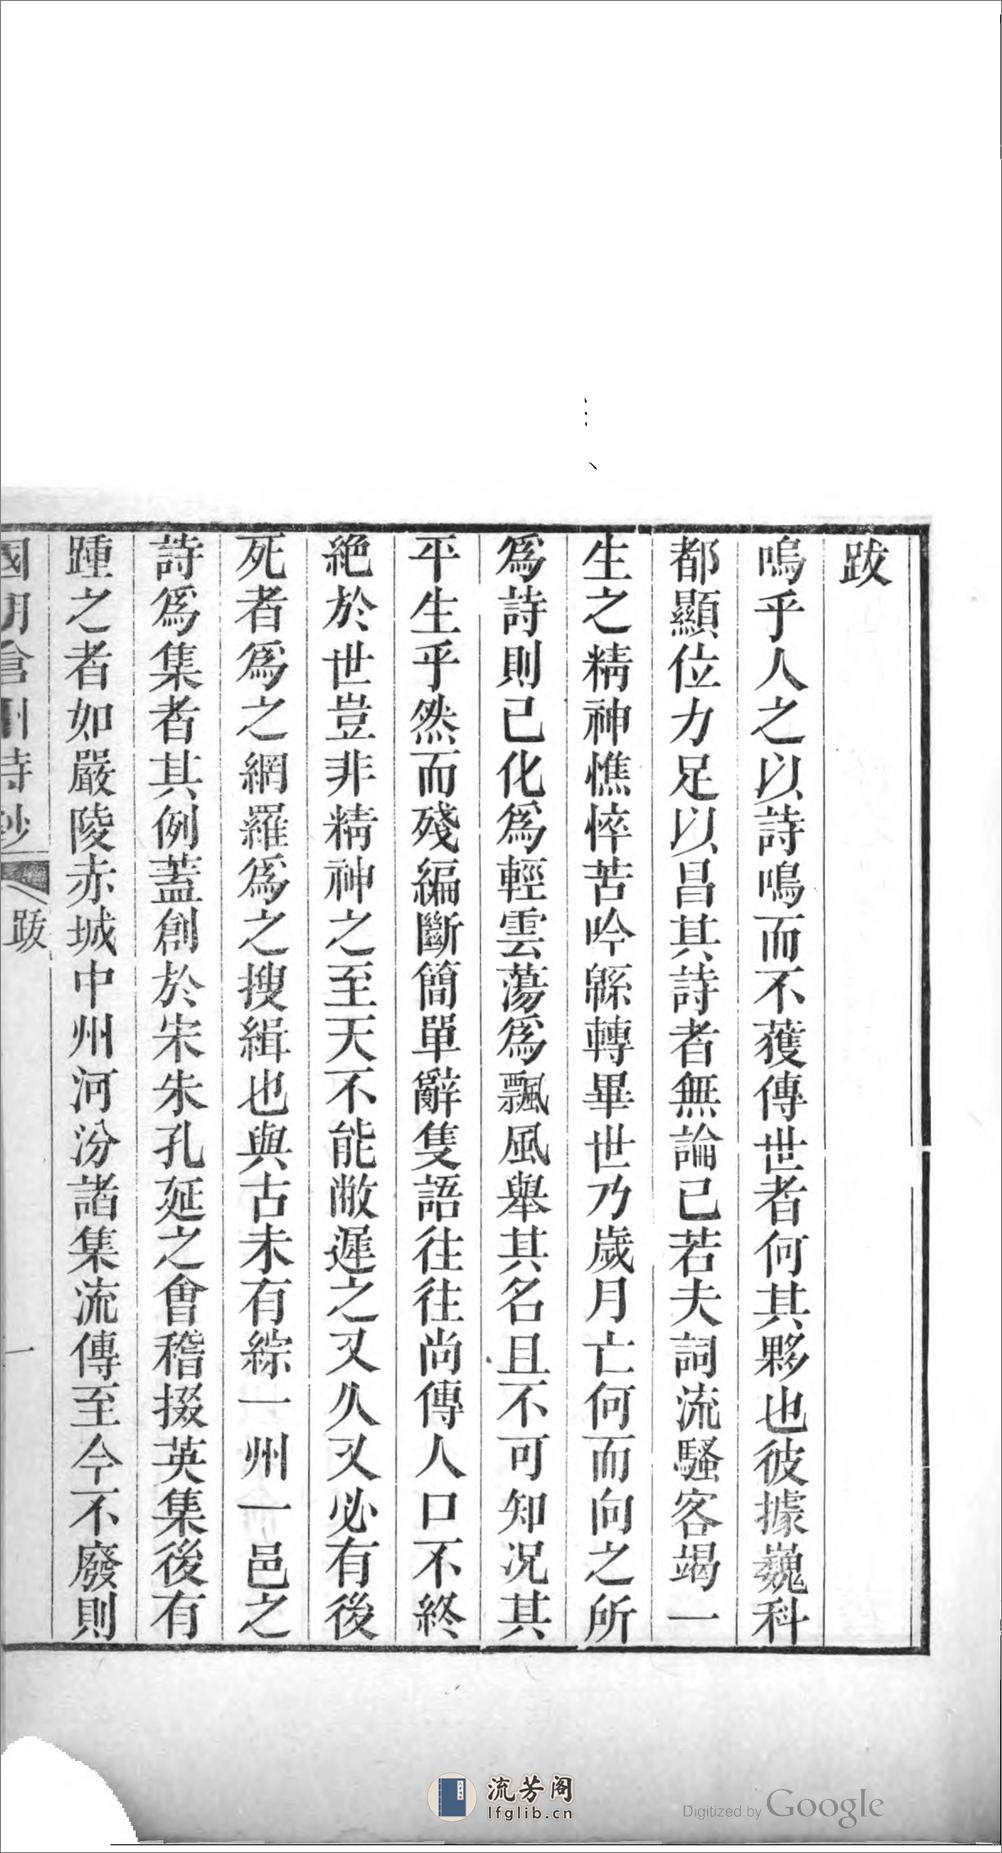 跋
嗚乎人之以詩鳴而不獲傳世者何其夥也彼據巍科
都顯位力足以昌其詩者無論已若夫詞流騷客竭一
生之精神憔悴苦吟緜轉畢世乃歲月亡何而向之所
爲詩則已化爲輕雲蕩爲飄風舉其名且不可知况其
平生乎然而殘編斷簡單辭隻語往往尚傳人口不終
絶於世豈非精神之至天不能敝遲之又久又必有後
死者爲之網羅爲之搜緝也與古未有綜一州一邑之
詩爲集者其例蓋創於宋朱孔延之會稽掇英集後有
踵之者如嚴陵赤城中州河汾諸集流傳至今不廢則
國朝滄州詩鈔 跋 一
流芳阁
lfglib.cn
Digitized by Google